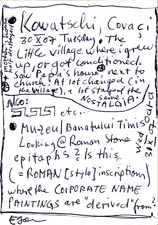 Kowatschi, Covaci
30 X 07 Tuesday, The
Little village where I grew
up, or got conditioned.
Saw Papa's house next to
church! A lot changed (in
the village), a lot stayed the
same
NOSTALGIA.
Also:
etc..
• Muzeul Banatului Timiș
Looking @ Roman Stone
epitaphs? Is this
(= ROMAN [style] inscriptions)
where the CORPORATE NAME
PAINTINGS are "derived" from?
31 X 07